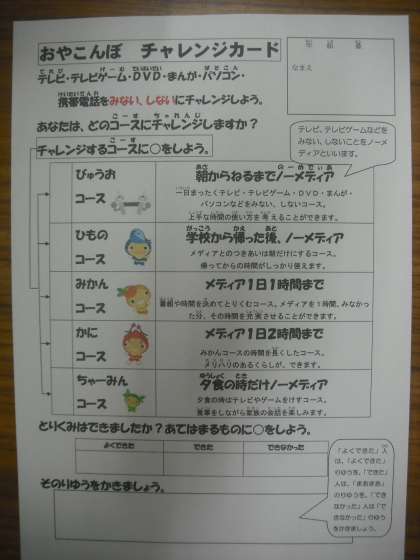 おやこんぼ チャレンジカード
なまえ
テレビ・テレビゲーム・DVD・まんが・パソコン・
携帯電話をみない、しないにチャレンジしよう。
あなたは、どのコースにチャレンジしますか?
チャレンジするコースに○をしよう。
テレビ、テレビゲームなどを
みない、しないことをノーメ
ディアといいます。
びゅうお
コース
朝からねるまでノーメディア
一日まったくテレビ・テレビゲーム・DVD・まんが・
パソコンなどをみない、しないコース。
上手な時間の使い方を考えることができます。
ひもの
コース
学校から帰った後、ノーメディア
メディアとのつきあいは朝だけにするコース。
帰ってからの時間がしっかり使えます。
みかん
コース
メディア1日1時間まで
番組や時間を決めてとりくむコース。メディアを1時間、みなかっ
た分、その時間を充実させることができます。
かに
コース
メディア1日2時間まで
みかんコースの時間を長くしたコース。
メリハリのあるくらしが、できます。
ちゃーみん
コース
夕食の時だけノーメディア
夕食の時はテレビやゲームをけすコース。
食事をしながら家族の会話を楽しみます。
とりくみはできましたか?あてはまるものに○をしよう。
よくできた できた できなかった
そのりゆうをかきましょう。
「よくできた」人
は、「よくできた」
りゆうを、「できた」
人は、「まあまあ」
のりゆうを、「でき
なかった」人は「で
きなかった」りゆう
をかきましょう。